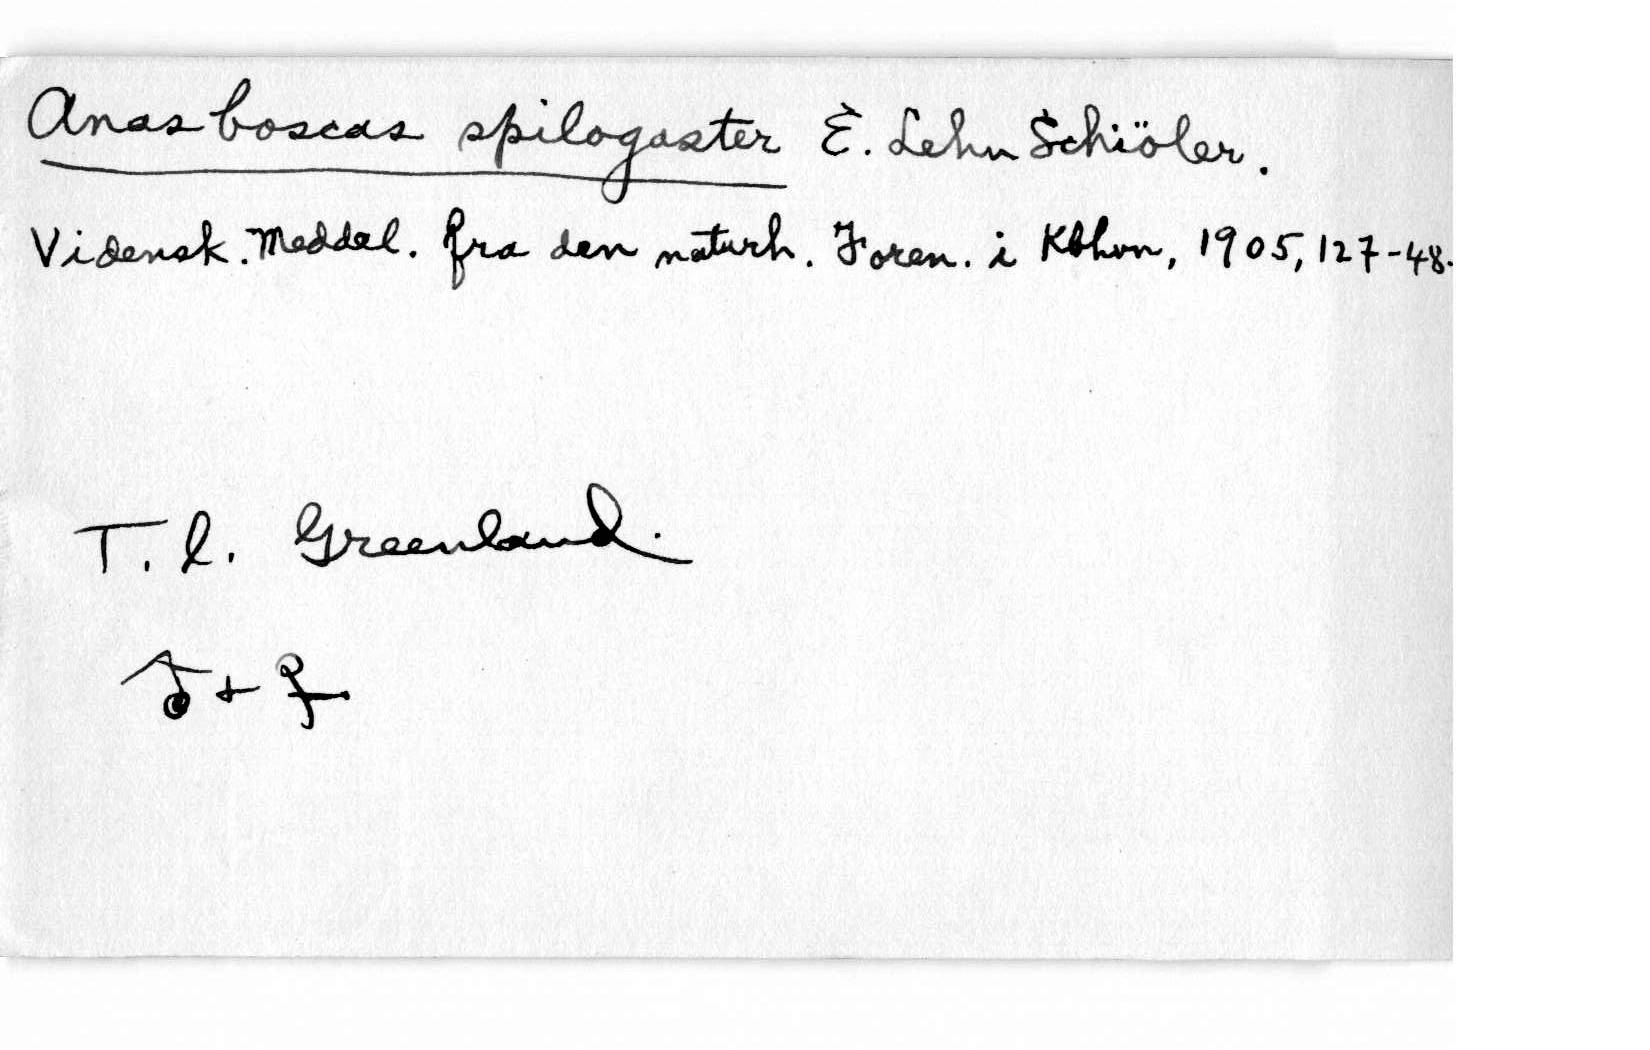 Anas boscas spilogaster E. Lehn Schiöler.
Vidensk. Meddel. fra den naturh. Foren. i Kbhvn, 1905, 127-48.
T. l. Greenland.
♂ + ♀